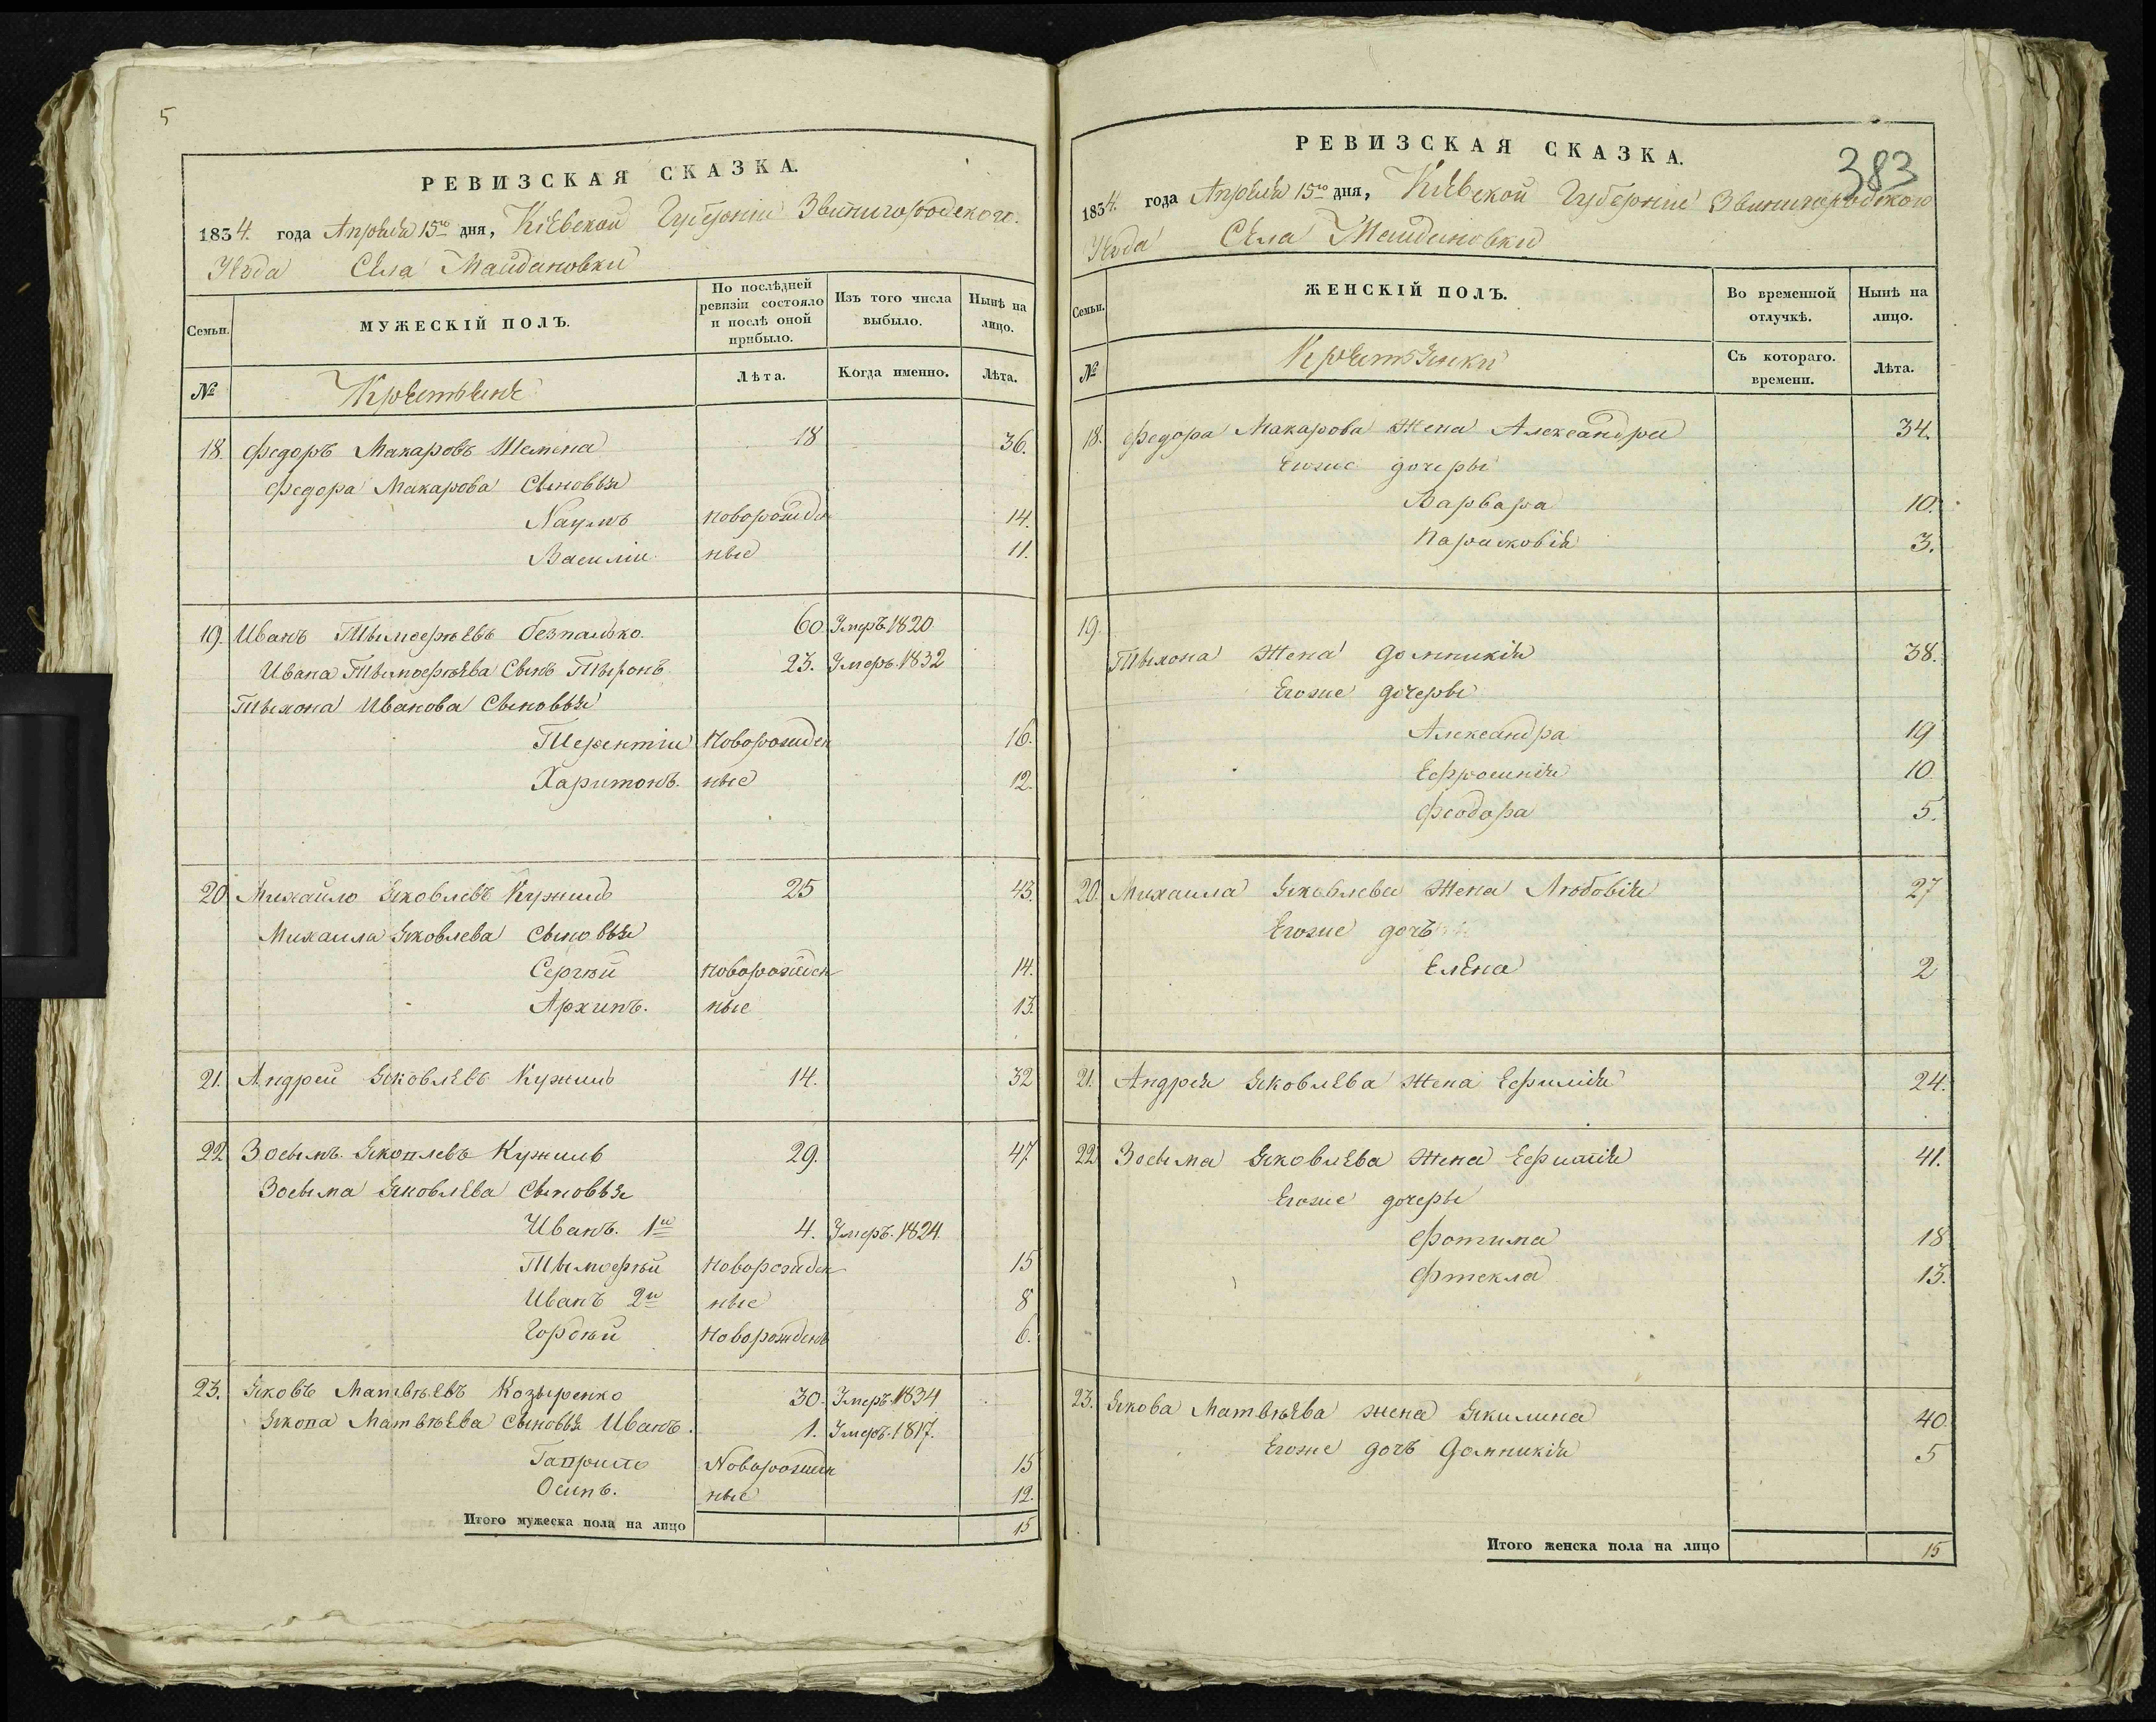 5
РЕВИЗСКАЯ СКАЗКА.
1834. года Апреля 15го дня, Кіевской Губерніи Звинигородского
Уезда Села Майдановки
Семьи. МУЖЕСКІЙ ПОЛЪ. По послѣдней ревизіи состояло и послѣ оной прибыло. Изъ того числа выбыло. Нынѣ на лицо.
№ Крестьяне Лѣта. Когда именно. Лѣта.
18. Федоръ Макаровъ 18 36.
Федора Макарова Сыновья
Наумъ новорожден 14.
Василіи ные 11.
19. Иванъ Тымофѣевъ безпалько 60 Умеръ 1820
Ивана Тымофѣева Сынъ 23. Умеръ 1832
Тыхона Иванова Сыновья
Терентіи Новорожден 16.
Харитонъ. ные 12.
20 Михайло Яковлевъ 25 43.
Михаила Яковлева Сыновья
Сергѣй новорожден 14.
Архипъ. ные 13.
21. Андреи Яковлевъ 14. 32
22 Зосымъ Якоплевъ 29. 47
Зосыма Яковлева Сыновья
Иванъ. 1й 4. Умеръ. 1824.
Тымофѣй Новорожден 15
Иванъ 2й ные 8
Гордѣй Новорожденъ 6.
23. Яковъ Матвѣевъ Козыренко 30. Умеръ 1834
Якопа Матвѣева Сыновья Иванъ. 1. Умеръ. 1817.
Гаприло Новорожден 15
Осипъ. ные 12.
Итого мужеска пола на лицо 15
383
РЕВИЗСКАЯ СКАЗКА.
1834. года Апреля 15го дня, Кіевской Губерніи Звинигородского
Уезда Села Майдановки
Семьи. ЖЕНСКІЙ ПОЛЪ. Во временной отлучкѣ. Нынѣ на лицо.
№ Крестянки Съ котораго. времени. Лѣта.
18. Федора Макарова Жена Александра 34.
Егоже дочеры
Варвара 10.
Парасковія 3.
19.
Тыхона Жена Домникія 38.
Егоже дочеры
Александра 19
Ефросинія 10
Феодора 5.
20. Михаила Яковлева Жена Любовія 27
Егоже дочъ
Елена 2
21. Андрея Яковлева Жена Ефимія 24.
22 Зосыма Яковлева Жена 41.
Егоже дочеры
Фотина 18
Фтекла 13.
23. Якова Матвѣева жена Якилина 40
Егоже дочъ Домникія 5
Итого женска пола на лицо 15